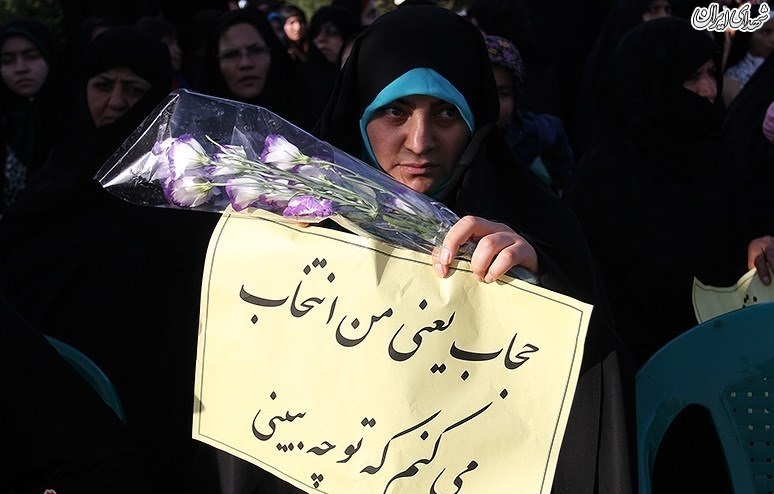 شهدای ایران
حجاب یعنی من انتخاب
می کنم که تو چه ببینی